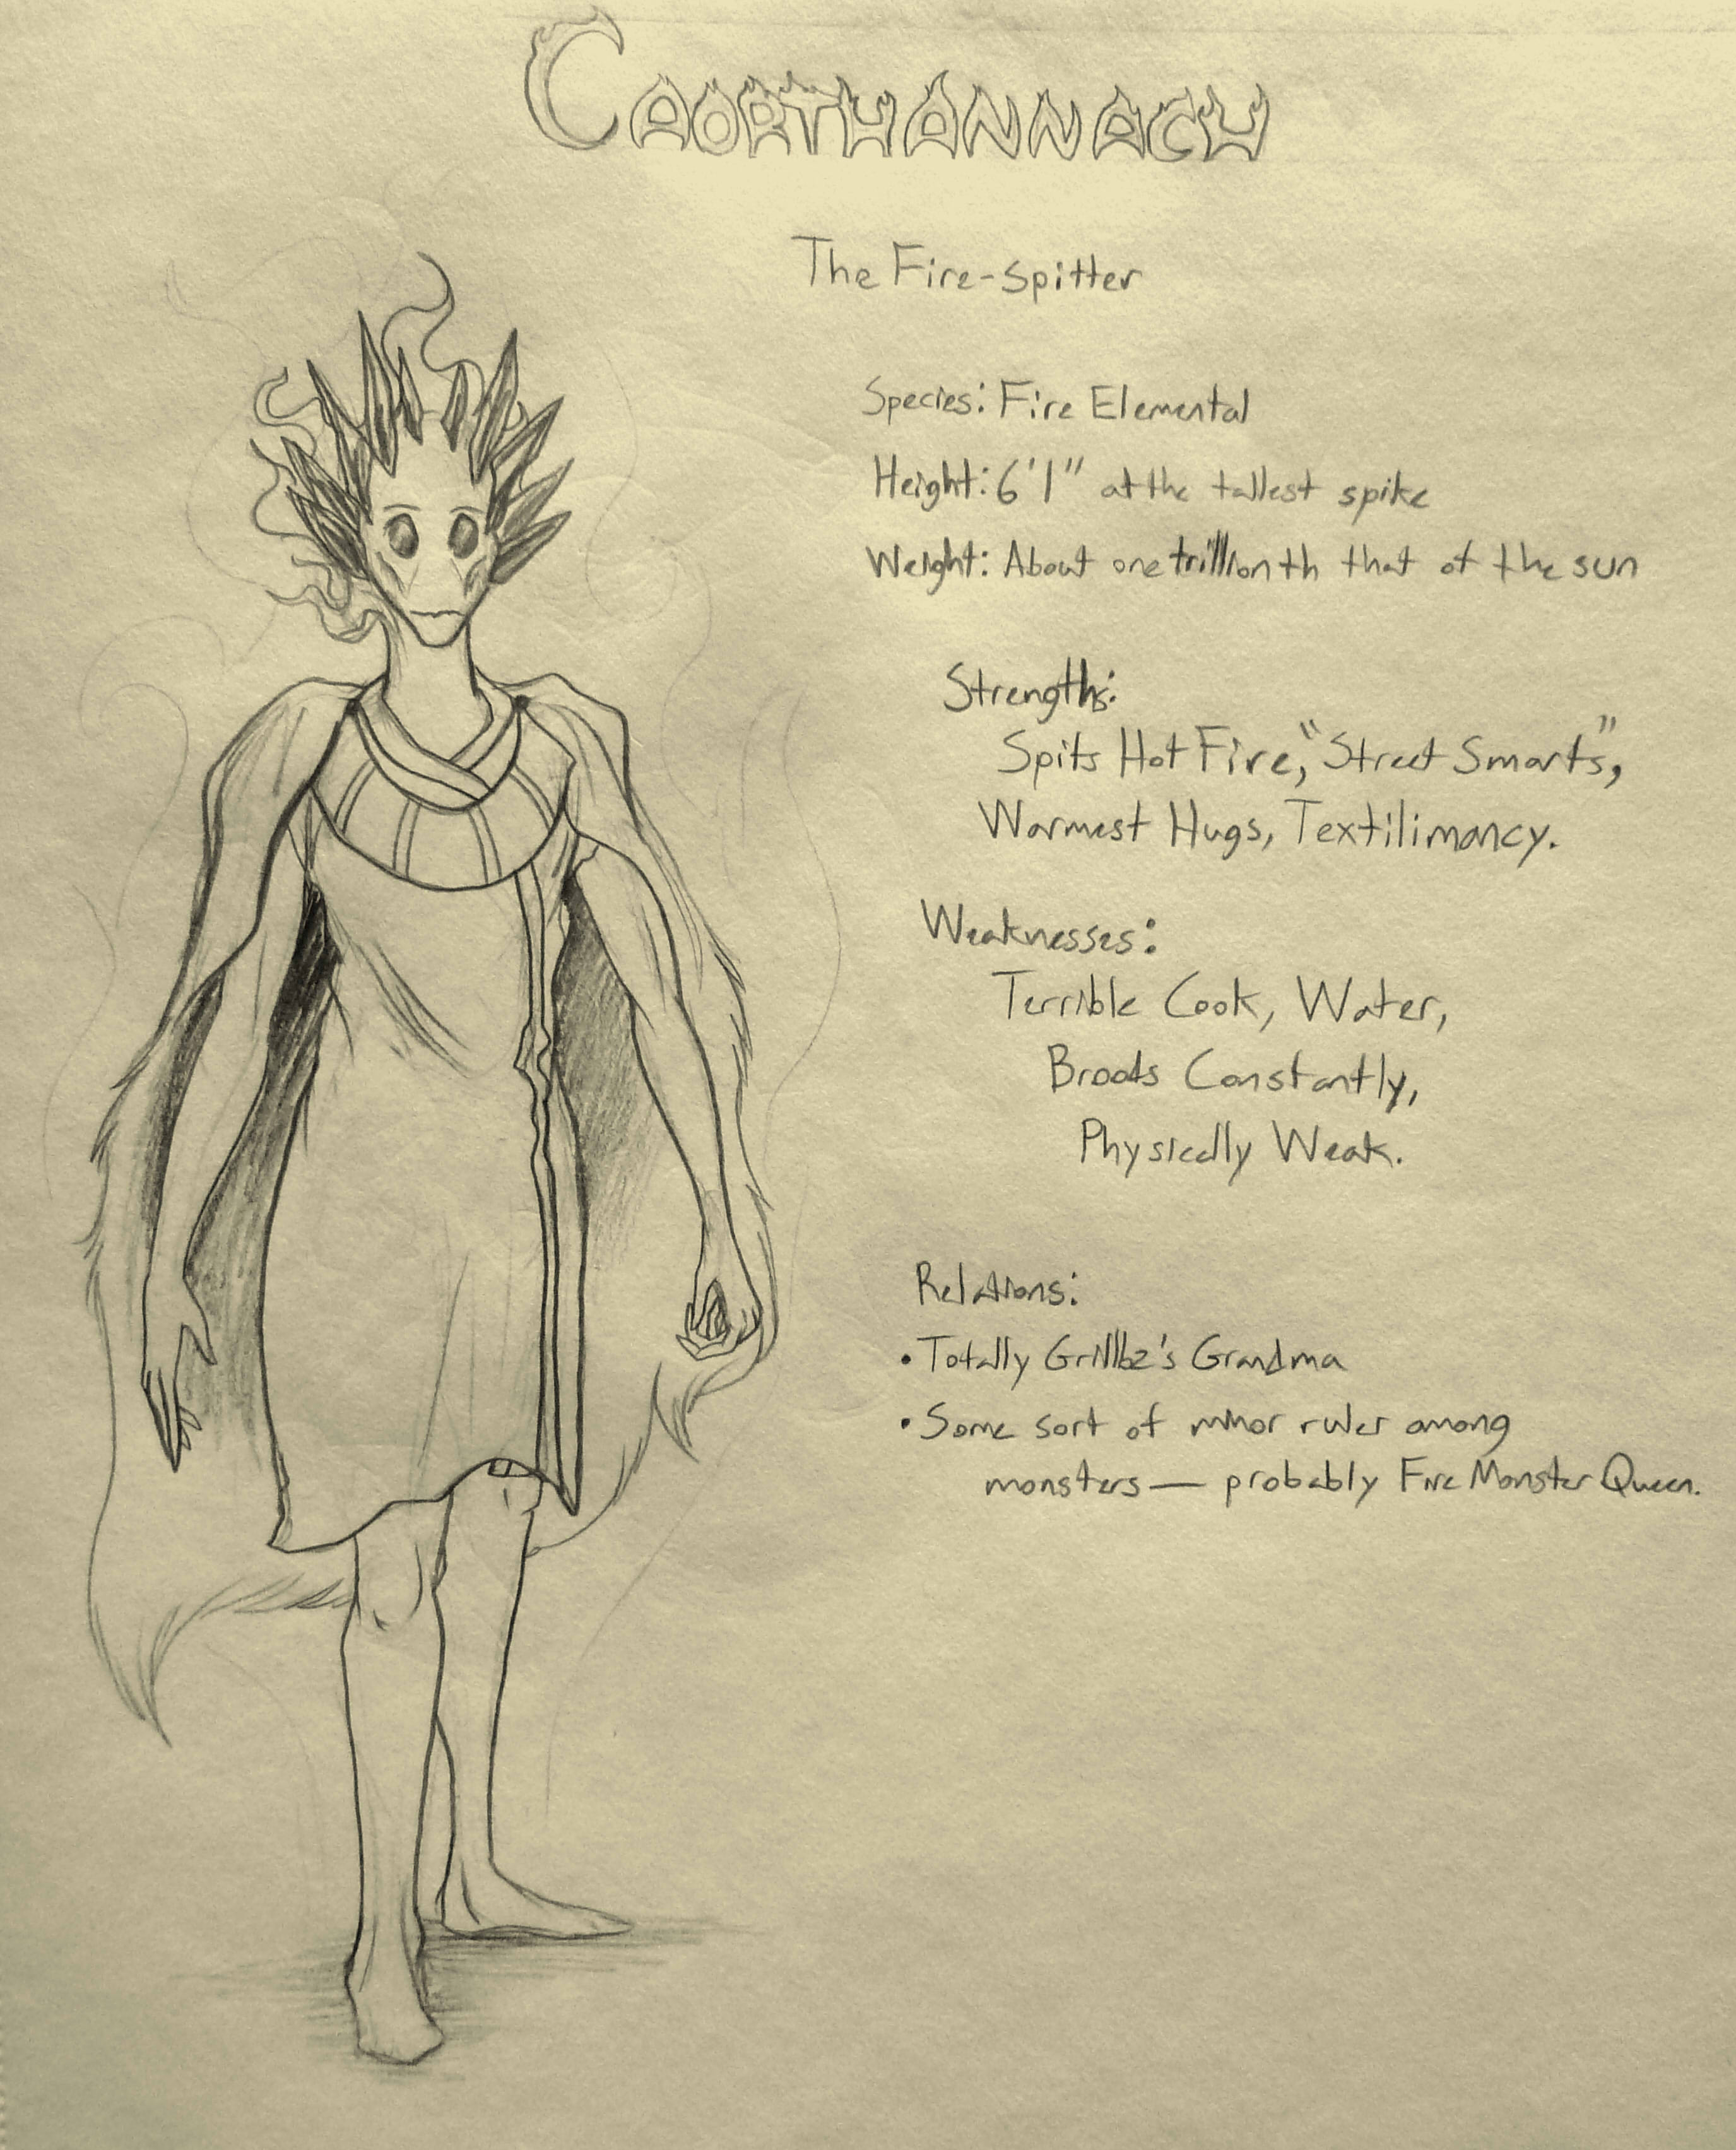 CAORTHANNACH
The Fire-Spitter
Species: Fire Elemental
Height: 6'1" at the tallest spike
Weight: About one trillionth that of the sun
Strengths:
Spits Hot Fire, "Street Smarts",
Warmest Hugs, Textilimancy.
Weaknesses:
Terrible Cook, Water,
Broods Constantly,
Physically Weak.
Relations:
• Totally Grillbz's Grandma
• Some sort of minor ruler among
monsters — probably Fire Monster Queen.